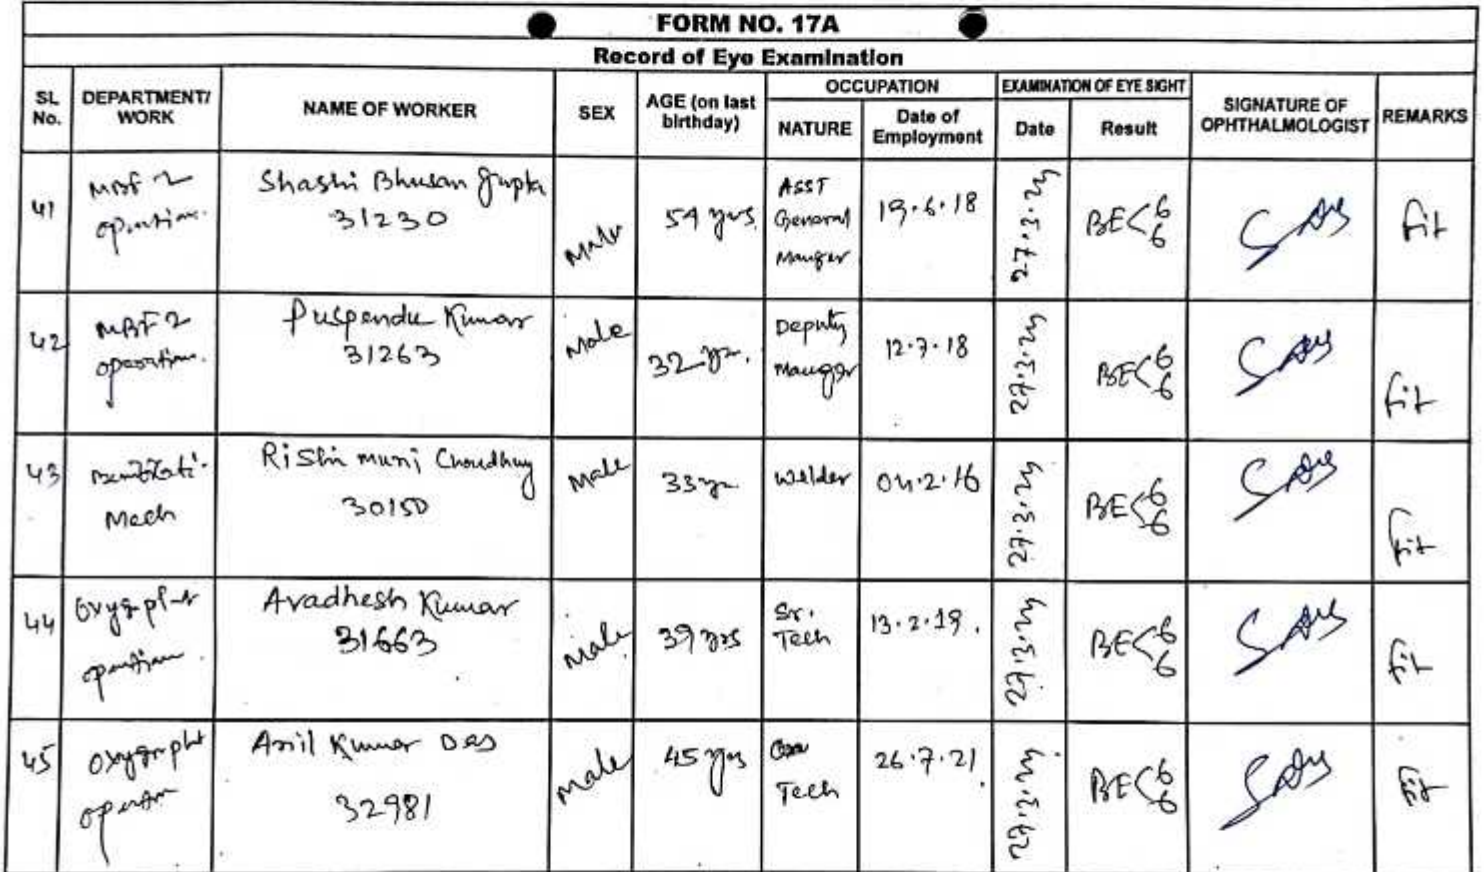 FORM NO. 17A
Record of Eye Examination
SL No. DEPARTMENT/ WORK NAME OF WORKER SEX AGE (on last birthday) OCCUPATION NATURE Date of Employment EXAMINATION OF EYE SIGHT Date Result SIGNATURE OF OPHTHALMOLOGIST REMARKS
41 MBF 2 operation Shashi Bhusan Gupta 31230 Male 54 yrs ASST General Manger 19.6.18 27.3.24 BE< 6 6 Fit
42 MBF 2 operation Puspendu Kumar 31263 Male 32 yr. Deputy Manger 12.7.18 27.3.24 BE< 6 6 Fit
43 Mech Rishi muni Choudhuy 30150 Male 33 yr Welder 04.2.16 27.3.24 BE< 6 6 Fit
44 operation Avadhesh Kumar 31663 Male 39 yrs Sr. Tech 13.2.19. 27.3.24 BE< 6 6 Fit
45 Anil Kumar Das 32981 Male 45 yrs Tech 26.7.21 27.3.24 BE< 6 6 Fit